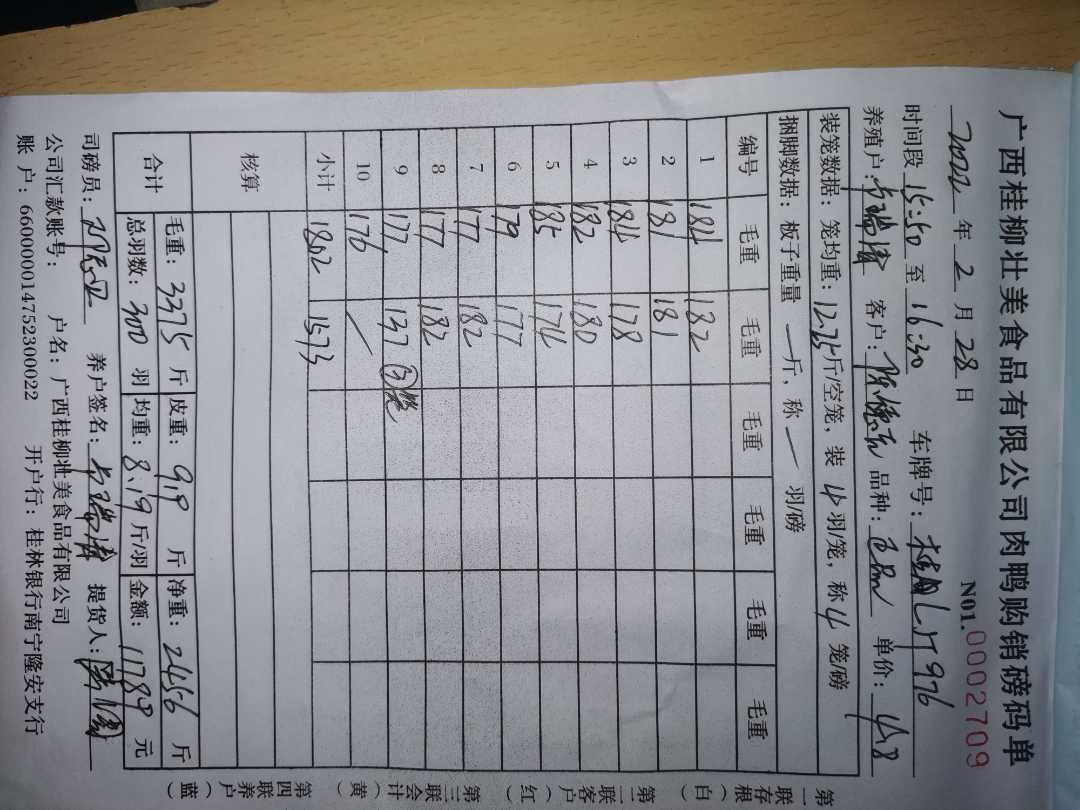 广西桂柳壮美食品有限公司肉鸭购销磅码单
N01. 0002709
2022 年 2 月 28 日
时间段 15:50 至 16:30 车牌号:
养殖户: 客户: 陈德 品种: 单价: 4.8
装笼数据: 笼均重: 12.25 斤/空笼, 装 4 羽/笼, 称 4 笼/磅
捆脚数据: 板子重量 — 斤, 称 — 羽/磅
编号 毛重 毛重 毛重 毛重 毛重 毛重
1 184 182
2 181 181
3 184 178
4 182 180
5 185 174
6 179 177
7 177 182
8 177 182
9 177 137 笼
10 176 /
小计 1802 1573
核算
合计 毛重: 3375 斤 皮重: 919 斤 净重: 2456 斤
总羽数: 300 羽 均重: 8.19 斤/羽 金额: 11789 元
司磅员: 养户签名: 提货人:
公司汇款账号: 户名: 广西桂柳壮美食品有限公司
账户: 660000014752300022 开户行: 桂林银行南宁隆安支行
第一联存根(白)
第二联客户(红)
第三联会计(黄)
第四联养户(蓝)